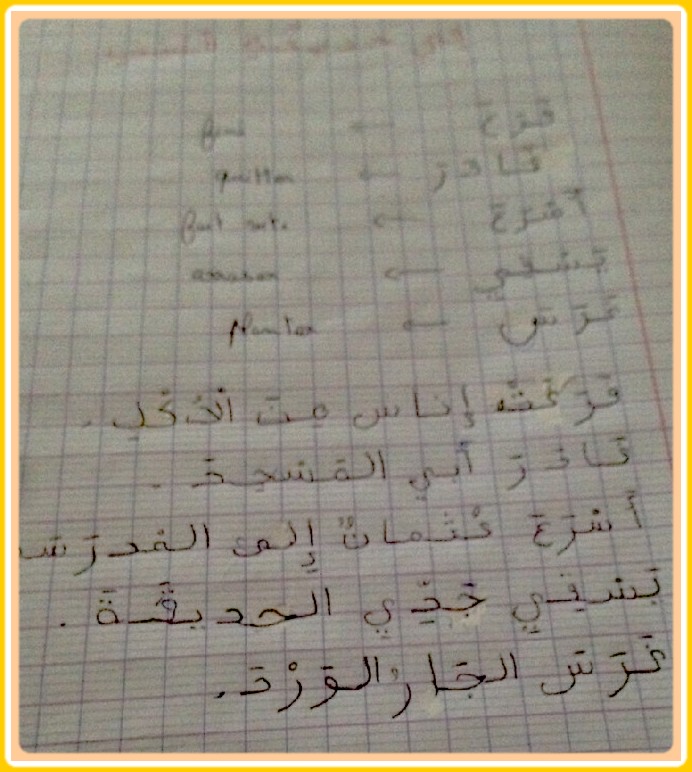 فَرَغَ ←
غَادَرَ ← quitter
أَسْرَعَ ←
يَسْقِي ←
غَرَسَ ← planter
فَرَغَتْ إناس مِنَ الْأَكْلِ .
غَادَرَ أَبي المَسْجِدَ .
أَسْرَعَ عُثْمانُ إِلى المَدْرَسَـ
يَسْقِي جَدِّي الحديقَةَ .
غَرَسَ الجَارُ الوَرْدَ .